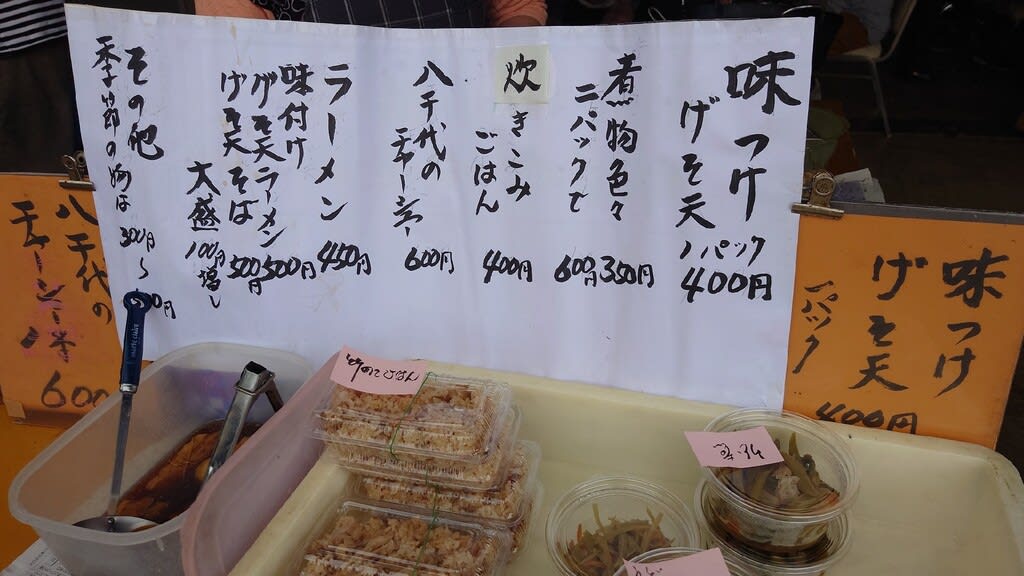 味つけ
げそ天
1パック
400円
煮物色々
350円
二パックで
600円
炊きこみ
ごはん
400円
八千代の
チャーシュー
600円
ラーメン
450円
味付け
げそ天ラーメン
500円
げそ天そば
500円
大盛
100円増し
その他
季節の物は
300円〜
味つけ
げそ天
1パック
400円
八千代の
チャーシュー
600